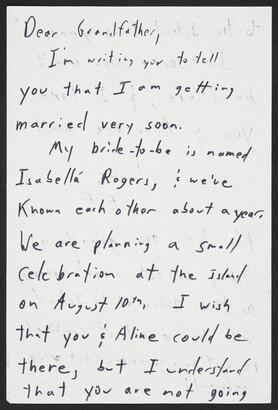 Dear Grandfather,
I'm writing you to tell
you that I am getting
married very soon.
My bride-to-be is named
Isabella Rogers, & we've
known each other about a year.
We are planning a small
celebration at the island
on August 10th. I wish
that you & Aline could be
there, but I understand
that you are not going